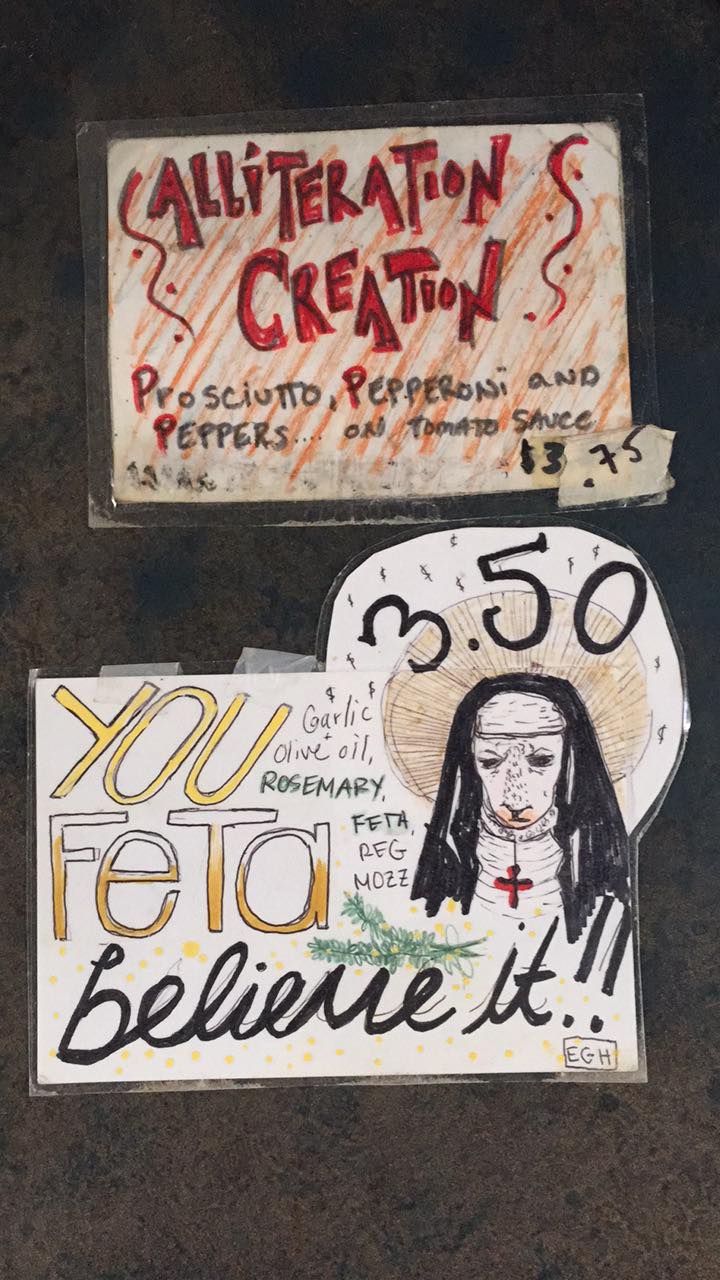 ALLiTERATiON
CREATiON
PROSCiUTTO, PEPPERONi AND
PEPPERS.... ON TOMATO SAUCE
$3.75
3.50
YOU
FeTa
believe it!!
Garlic
+
Olive oil,
ROSEMARY,
FETA,
REG
MOZZ
EGH